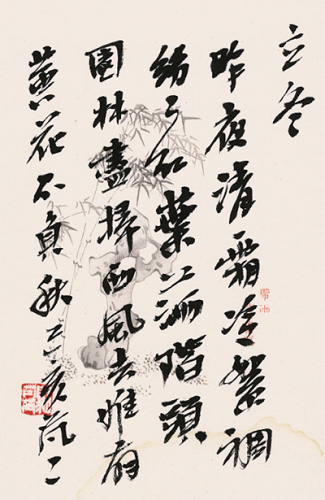 立冬
昨夜清霜冷絮裯
紛々紅葉滿階頭
園林盡掃西風去惟有
黄花不負秋